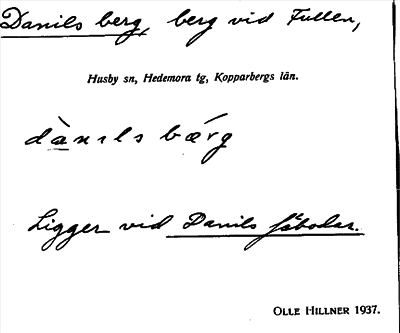 Danils berg, berg vid Fullen,
Husby sn, Hedemora tg, Kopparbergs län.
dànils bǽrg
Ligger vid Danils fäbodar.
OLLE HILLNER 1937.